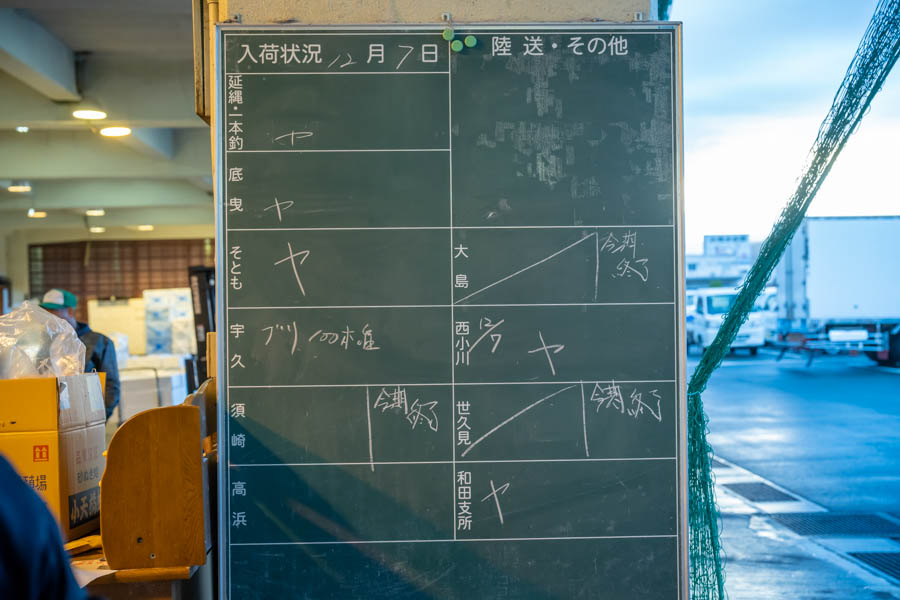 入荷状況 12月7日
陸送・その他
延縄・一本釣
ヤ
底曳
ヤ
そとも
ヤ
大島
今期
終了
宇久
ブリ 100本程
西小川
12/7
ヤ
須崎
今期
終了
世久見
今期
終了
高浜
和田支所
ヤ
小天